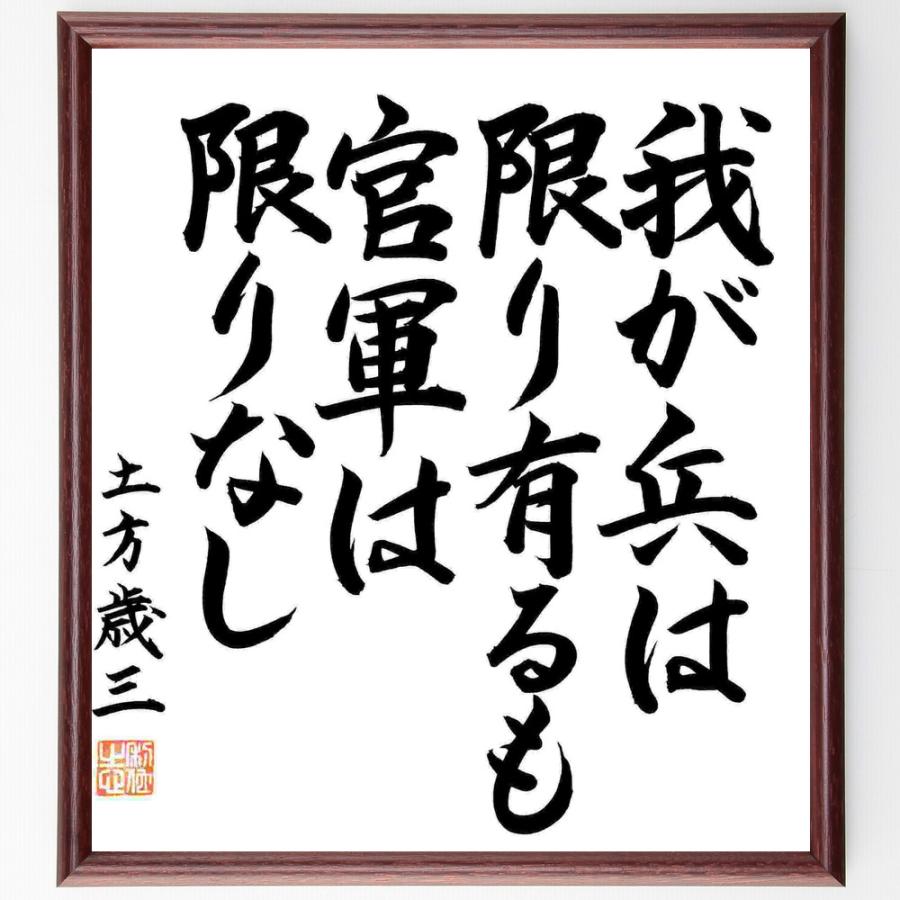 我が兵は
限り有るも
官軍は
限りなし
土方歳三